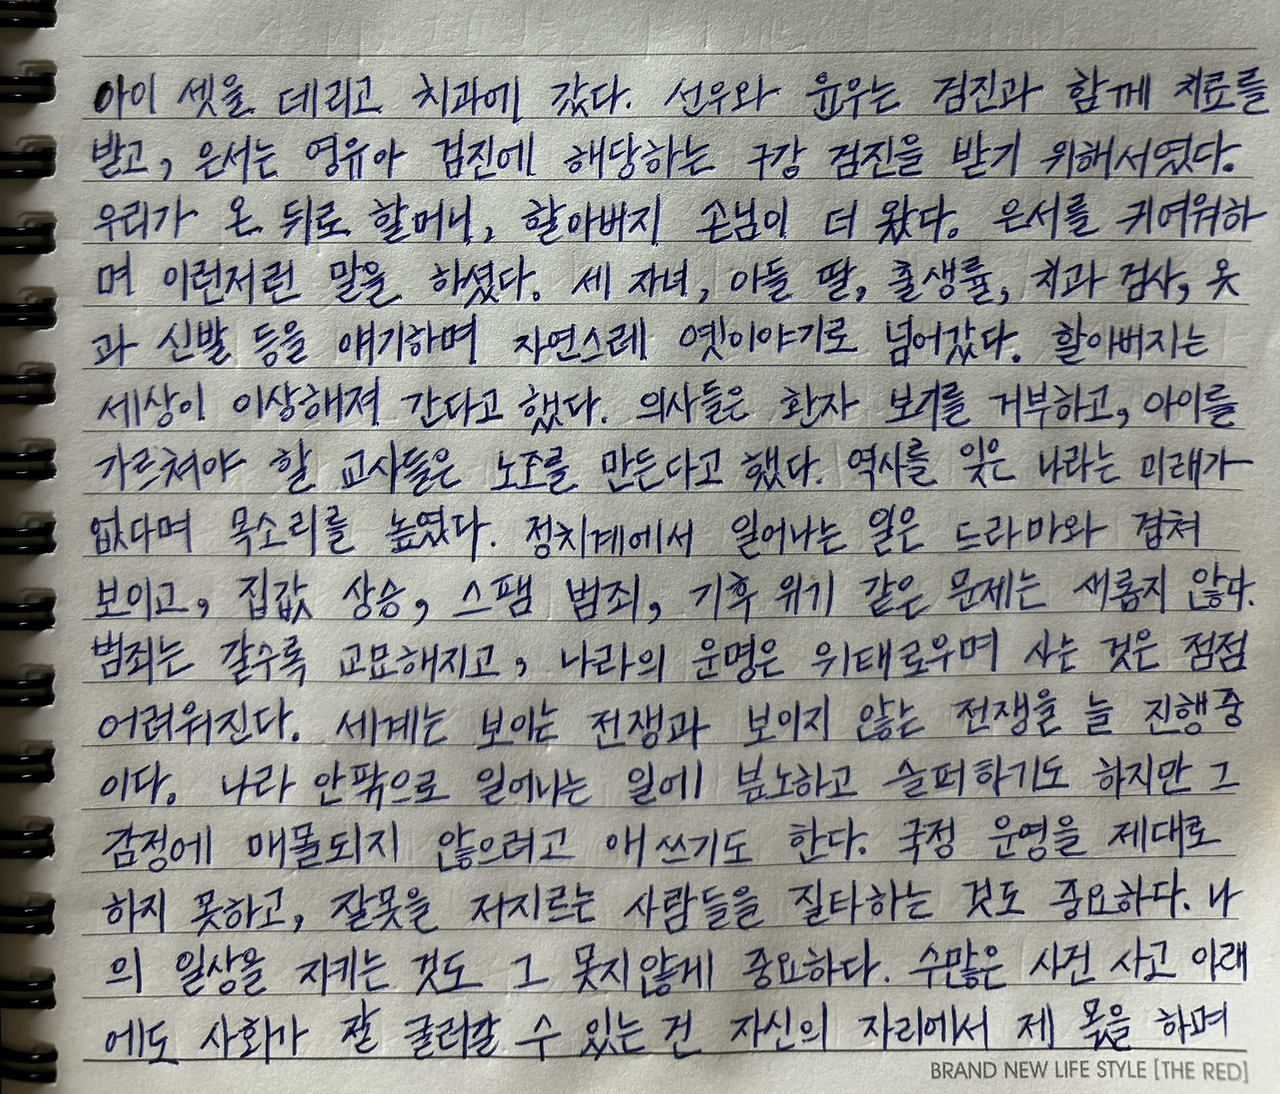 아이 셋을 데리고 치과에 갔다. 선우와 윤우는 검진과 함께 치료를
받고, 은서는 영유아 검진에 해당하는 구강 검진을 받기 위해서였다.
우리가 온 뒤로 할머니, 할아버지 손님이 더 왔다. 은서를 귀여워하
며 이런저런 말을 하셨다. 세 자녀, 아들 딸, 출생률, 치과 검사, 옷
과 신발 등을 얘기하며 자연스레 옛이야기로 넘어갔다. 할아버지는
세상이 이상해져 간다고 했다. 의사들은 환자 보기를 거부하고, 아이를
가르쳐야 할 교사들은 노조를 만든다고 했다. 역사를 잊은 나라는 미래가
없다며 목소리를 높였다. 정치계에서 일어나는 일은 드라마와 겹쳐
보이고, 집값 상승, 스팸 범죄, 기후 위기 같은 문제는 새롭지 않다.
범죄는 갈수록 교묘해지고, 나라의 운명은 위태로우며 사는 것은 점점
어려워진다. 세계는 보이는 전쟁과 보이지 않는 전쟁을 늘 진행 중
이다. 나라 안팎으로 일어나는 일에 분노하고 슬퍼하기도 하지만 그
감정에 매몰되지 않으려고 애쓰기도 한다. 국정 운영을 제대로
하지 못하고, 잘못을 저지르는 사람들을 질타하는 것도 중요하다. 나
의 일상을 지키는 것도 그 못지않게 중요하다. 수많은 사건 사고 아래
에도 사회가 잘 굴러갈 수 있는 건 자신의 자리에서 제 몫을 하며
BRAND NEW LIFE STYLE [THE RED]